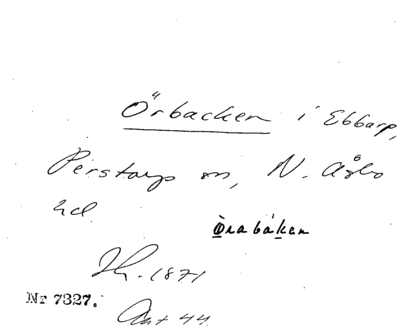 Örbacken i Ebbarp,
Perstorps sn, N. Åsbo
hd.
Örabáken
1871
Nr 7327.
44